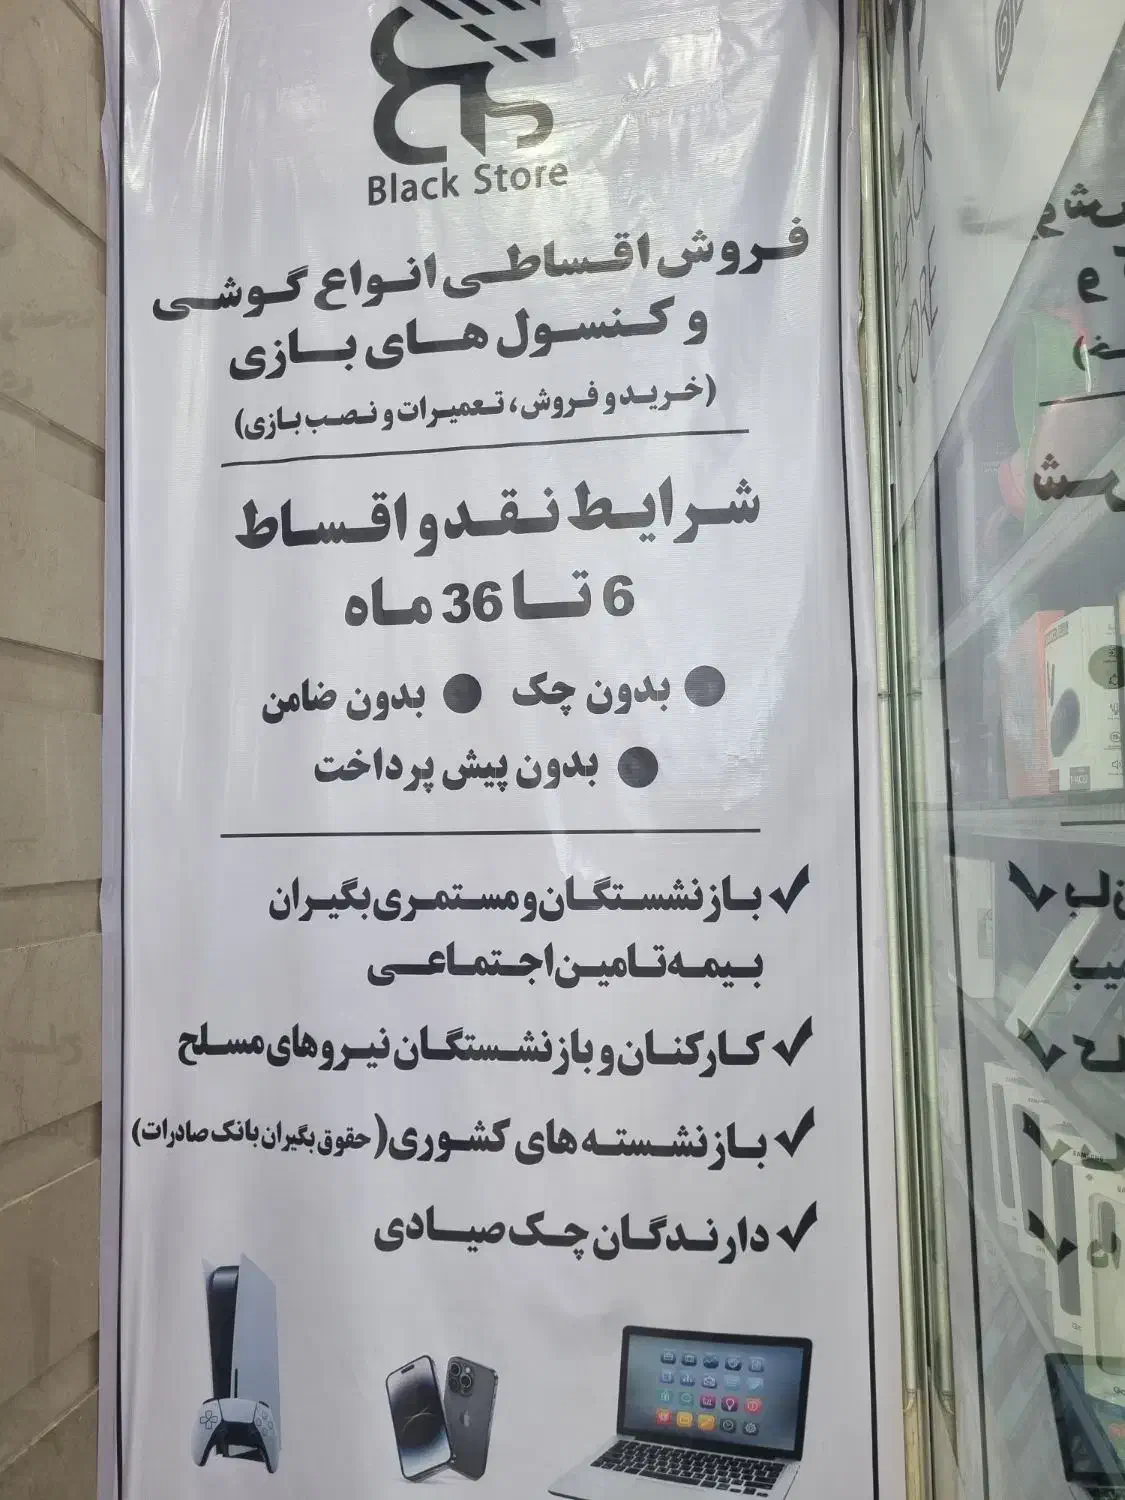 Black Store
فروش اقساطی انواع گوشی
و کنسول های بازی
(خرید و فروش، تعمیرات و نصب بازی)
شرایط نقد و اقساط
6 تا 36 ماه
بدون چک بدون ضامن
بدون پیش پرداخت
بازنشستگان و مستمری بگیران
بیمه تامین اجتماعی
کارکنان و بازنشستگان نیروهای مسلح
بازنشسته های کشوری (حقوق بگیران بانک صادرات)
دارندگان چک صیادی
STORE